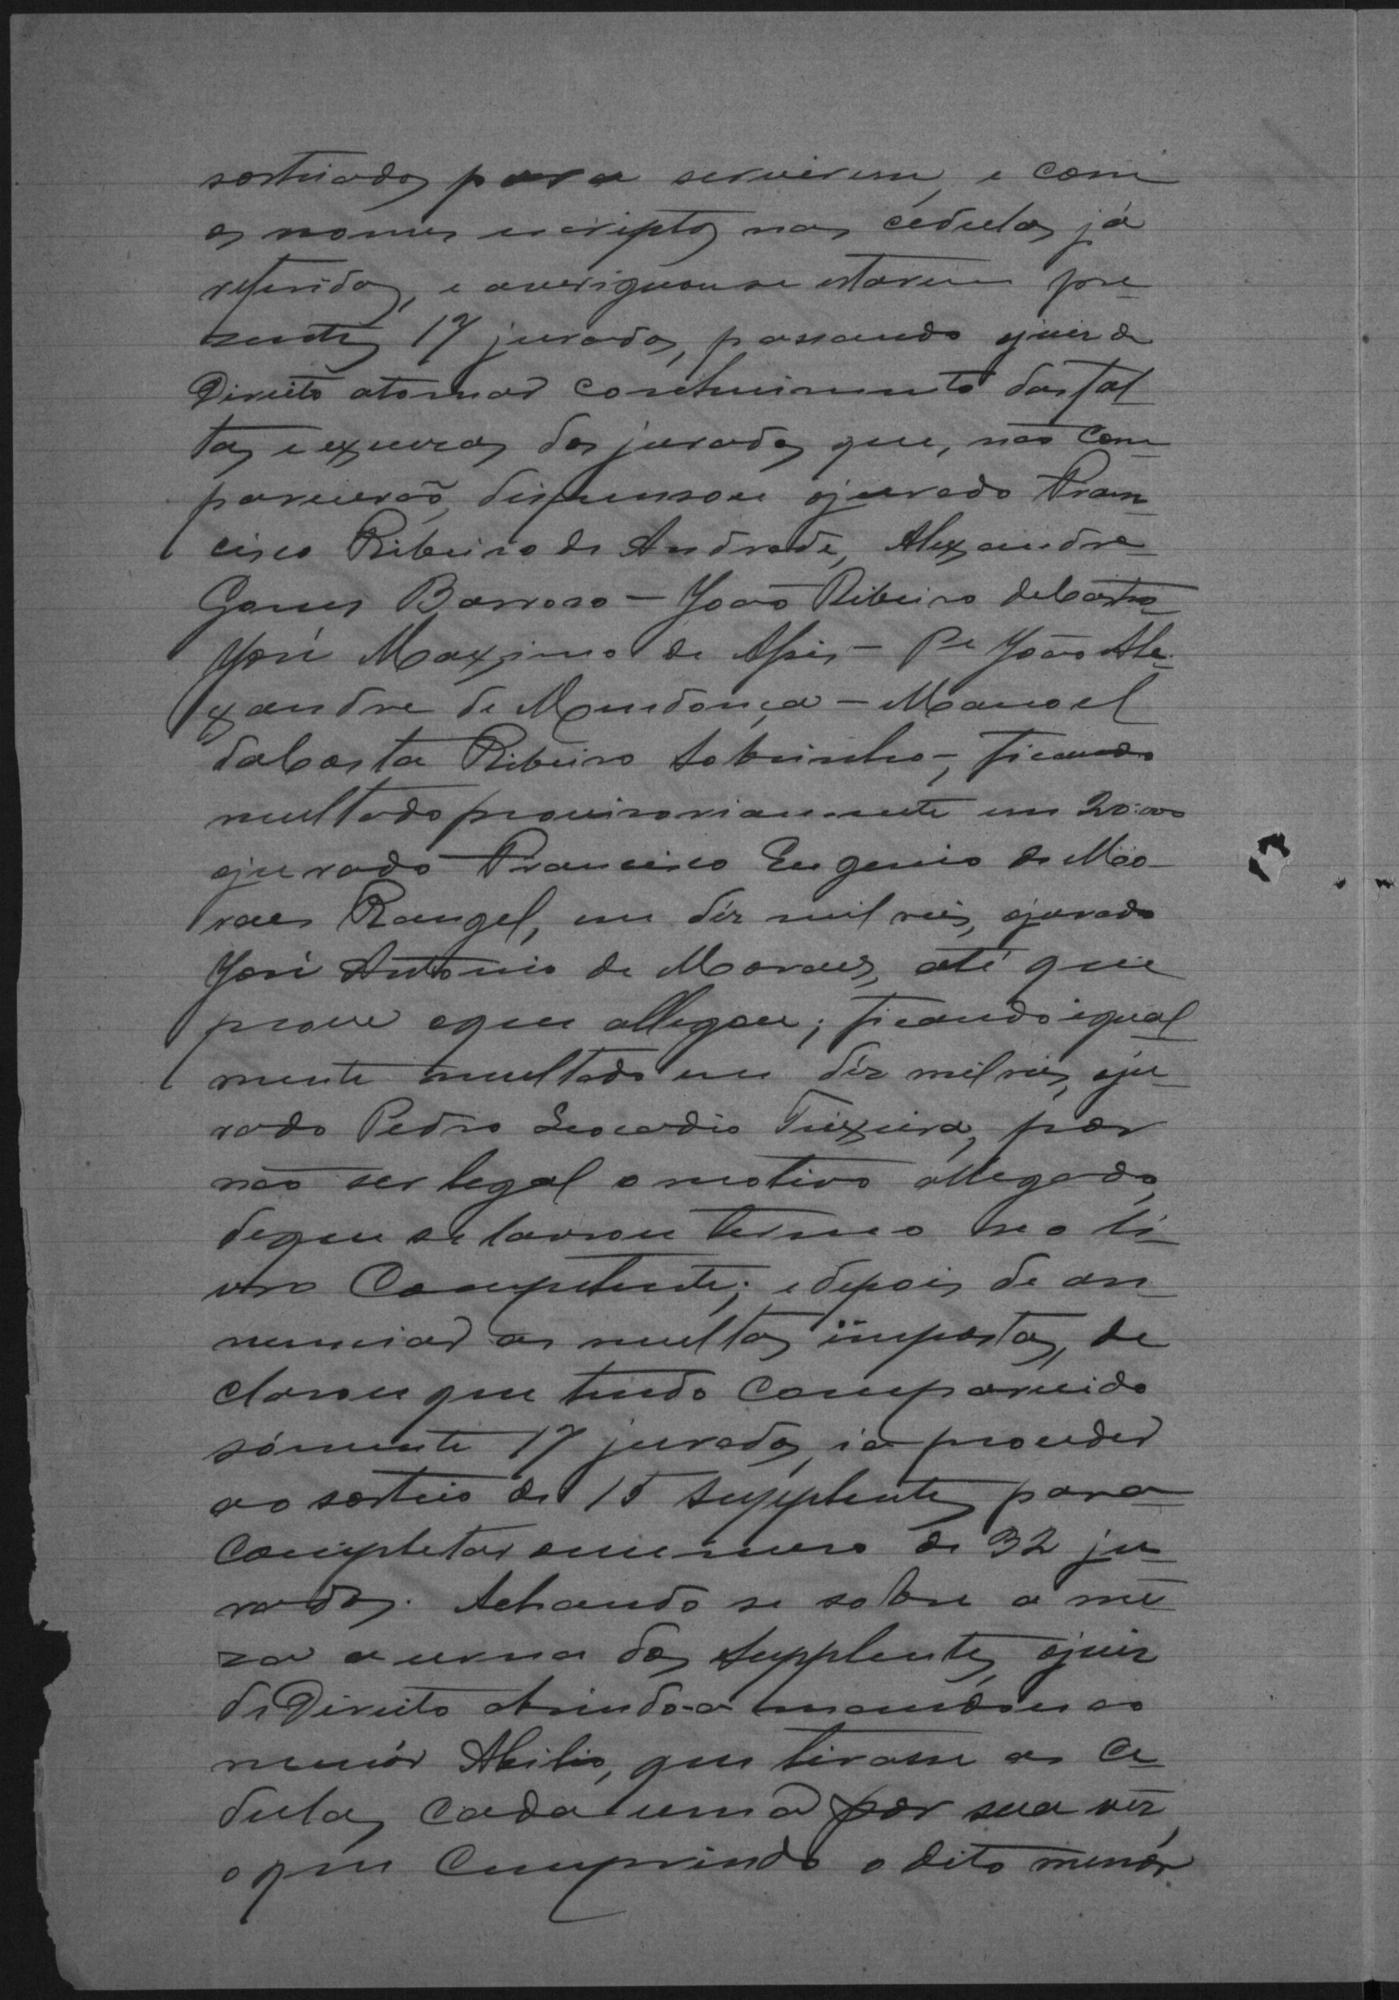 sorteados para servirem, e com
os nomes escriptos nas cedulas já
referidas, e averiguou-se estarem pre-
zentes 17 jurados, passando o juiz de
Direito a tomar conhecimento das fal-
tas e excuzas dos jurados que, não com-
parecerão, dispensou o jurado Fran-
cisco Ribeiro de Andrade, Alexandre
Gomes Barroso – João Ribeiro da Costa –
José Maximo de Assis – Pe João Ale-
xandre de Mendonça – Manoel
da Costa Ribeiro Sobrinho –, ficando
multado provisoriamente em 20:000
o jurado Francisco Eugenio de Mo-
raes Rangel, em déz mil reis, o jurado
José Antonio de Moraes, até que
prove o que allegou; ficando igual-
mente multado em déz mil reis, o ju-
rado Pedro Leocadio Teixeira, por
não ser legal o motivo allegado,
de que se lavrou termo no li-
vro Competente; e depois de an-
nunciar as multas impostas, de
clarou que tendo comparecido
sómente 17 jurados, ia proceder
ao sorteio de 15 supplentes para
completar o numero de 32 ju-
rados. Achando se sobre a me-
za a urna dos supplentes, o juiz
de Direito abrindo-a mandou ao
menór Abilio, que tirasse as Ce-
dulas, cada uma por sua vez,
o que Cumprindo o dito menór